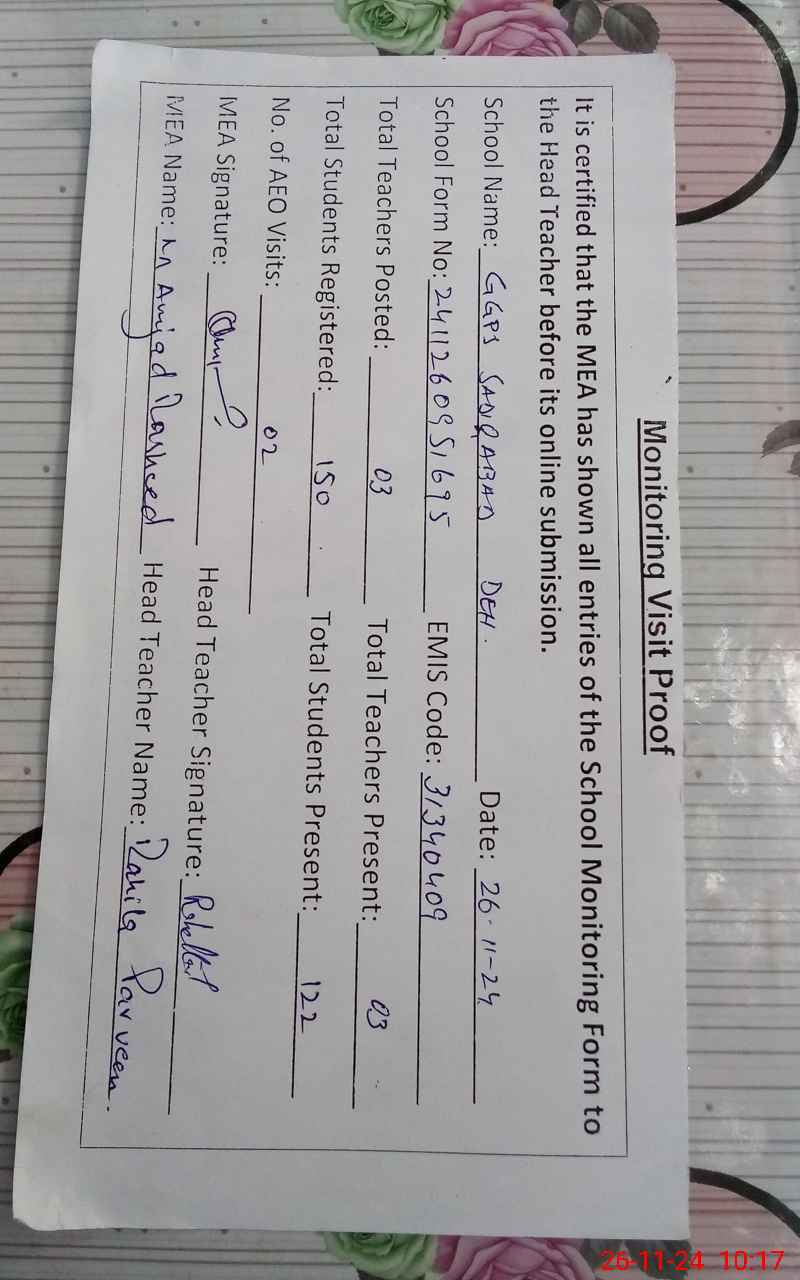 Monitoring Visit Proof
It is certified that the MEA has shown all entries of the School Monitoring Form to
the Head Teacher before its online submission.
School Name: GGPS SADIQABAD DEH. Date: 26-11-24
School Form No: 2411260951695 EMIS Code: 31340409
Total Teachers Posted: 03 Total Teachers Present: 03
Total Students Registered: 150 Total Students Present: 122
No. of AEO Visits: 02
MEA Signature: Head Teacher Signature:
MEA Name: Amjad Rasheed Head Teacher Name: Rahila Parveen.
26-11-24 10:17